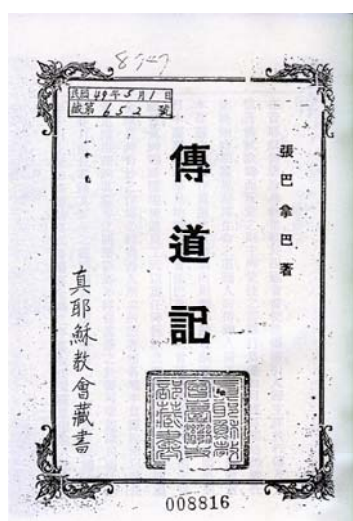 民國49年5月1日
藏第652號
張巴拿巴著
傳道記
真耶穌教會藏書
008816